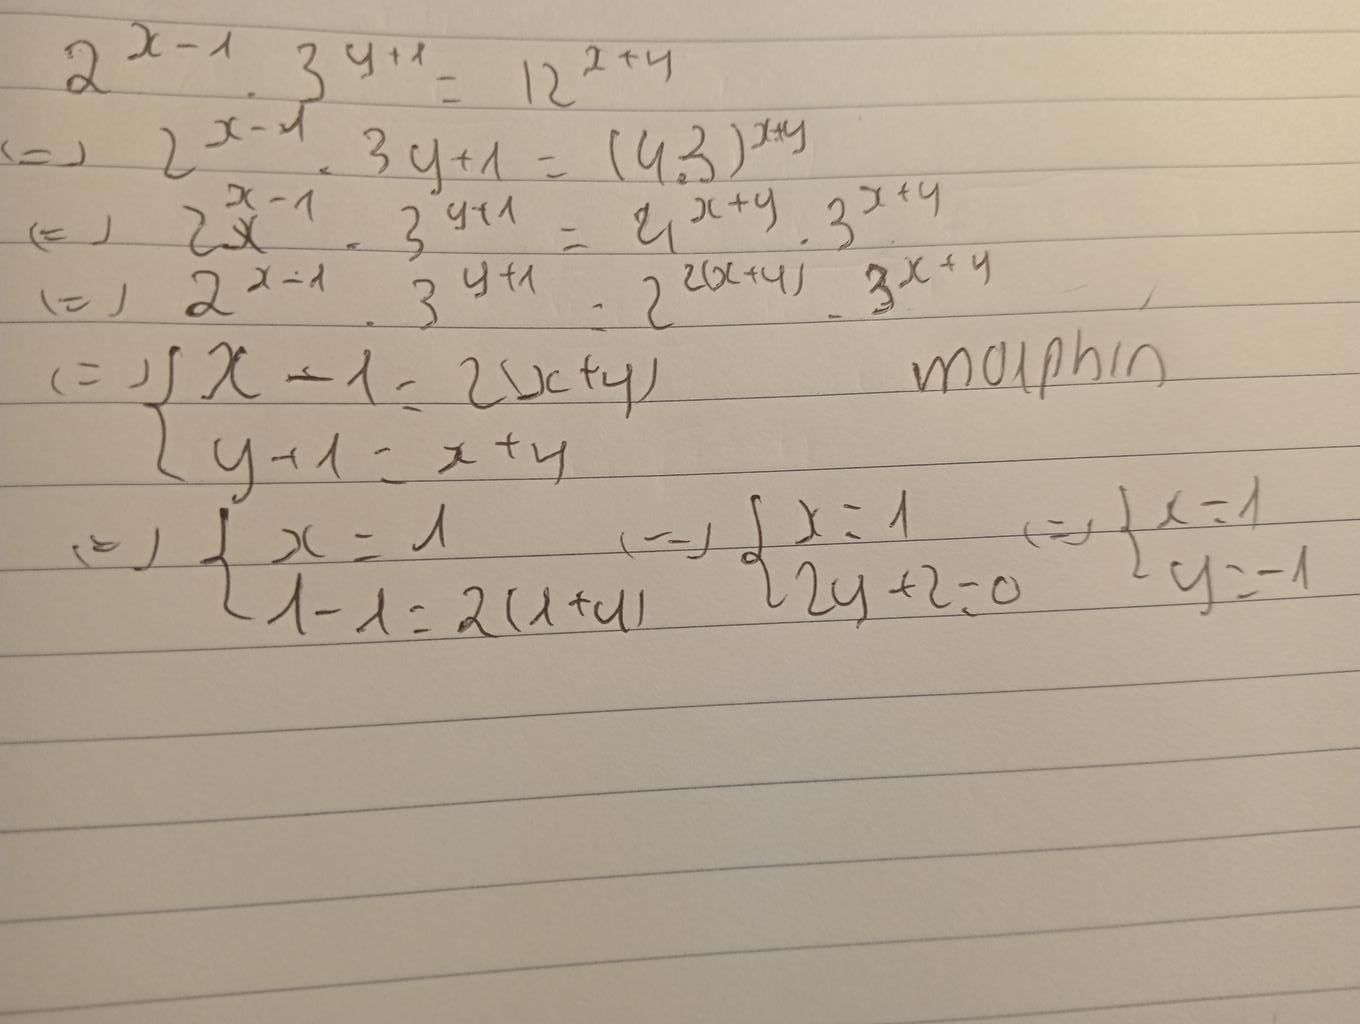 2^{x-1} . 3^{y+1} = 12^{x+y}
(=) 2^{x-1} . 3y+1 = (4.3)^{x+y}
(=) 2^{x-1} . 3^{y+1} = 4^{x+y} . 3^{x+y}
(=) 2^{x-1} . 3^{y+1} = 2^{2(x+y)} . 3^{x+y}
(=) { x - 1 = 2(x+y)
y+1 = x+y
morphin
(=) { x = 1 (=) { x = 1 (=) { x = 1
1-1 = 2(1+y) 2y+2=0 y=-1